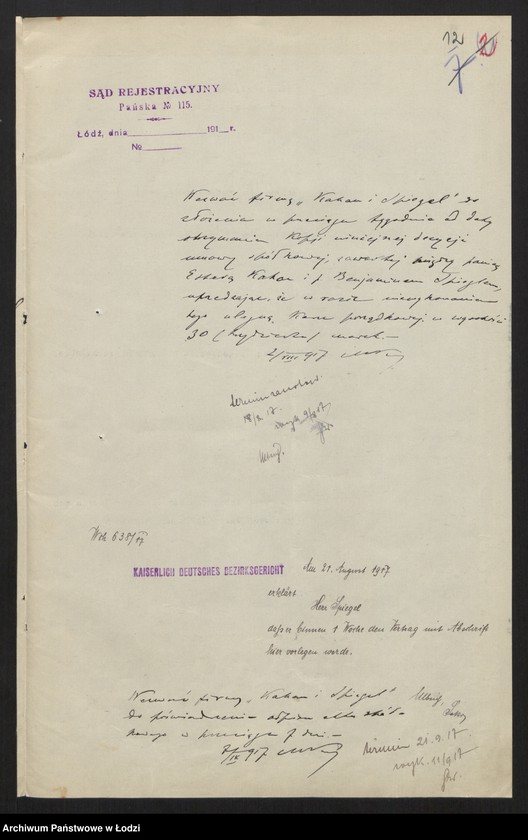 12
7
2
SĄD REJESTRACYJNY
Pańska № 115.
Łódź, dnia 191 r.
№
Wezwać firmę „Kahan i Spiegel" do
złożenia w przeciągu tygodnia od daty
otrzymania kopji niniejszej decyzji
umowy spółkowej, zawartej między panią
Esterą Kahan i p. Benjaminem Spieglem,
uprzedzając, że w razie niewykonania
tego ulegną karze porządkowej w wysokości
30 (trzydziestu) marek.—
2/VIII 917
18/8 17.
Wch 638/17
KAISERLICH DEUTSCHES BEZIRKSGERICHT
Am 21. August 1917.
erklärt
Herr Spiegel
daß er binnen 1 Woche den Vertrag mit Abschrift
hier vorlegen werde.
Wezwać firmę „Kahan i Spiegel"
do poświadczenia odpisu aktu spół-
kowego w przeciągu 7 dni.—
7/IX 917
termin 21.9.17.
wyk. 11/9 17
Archiwum Państwowe w Łodzi